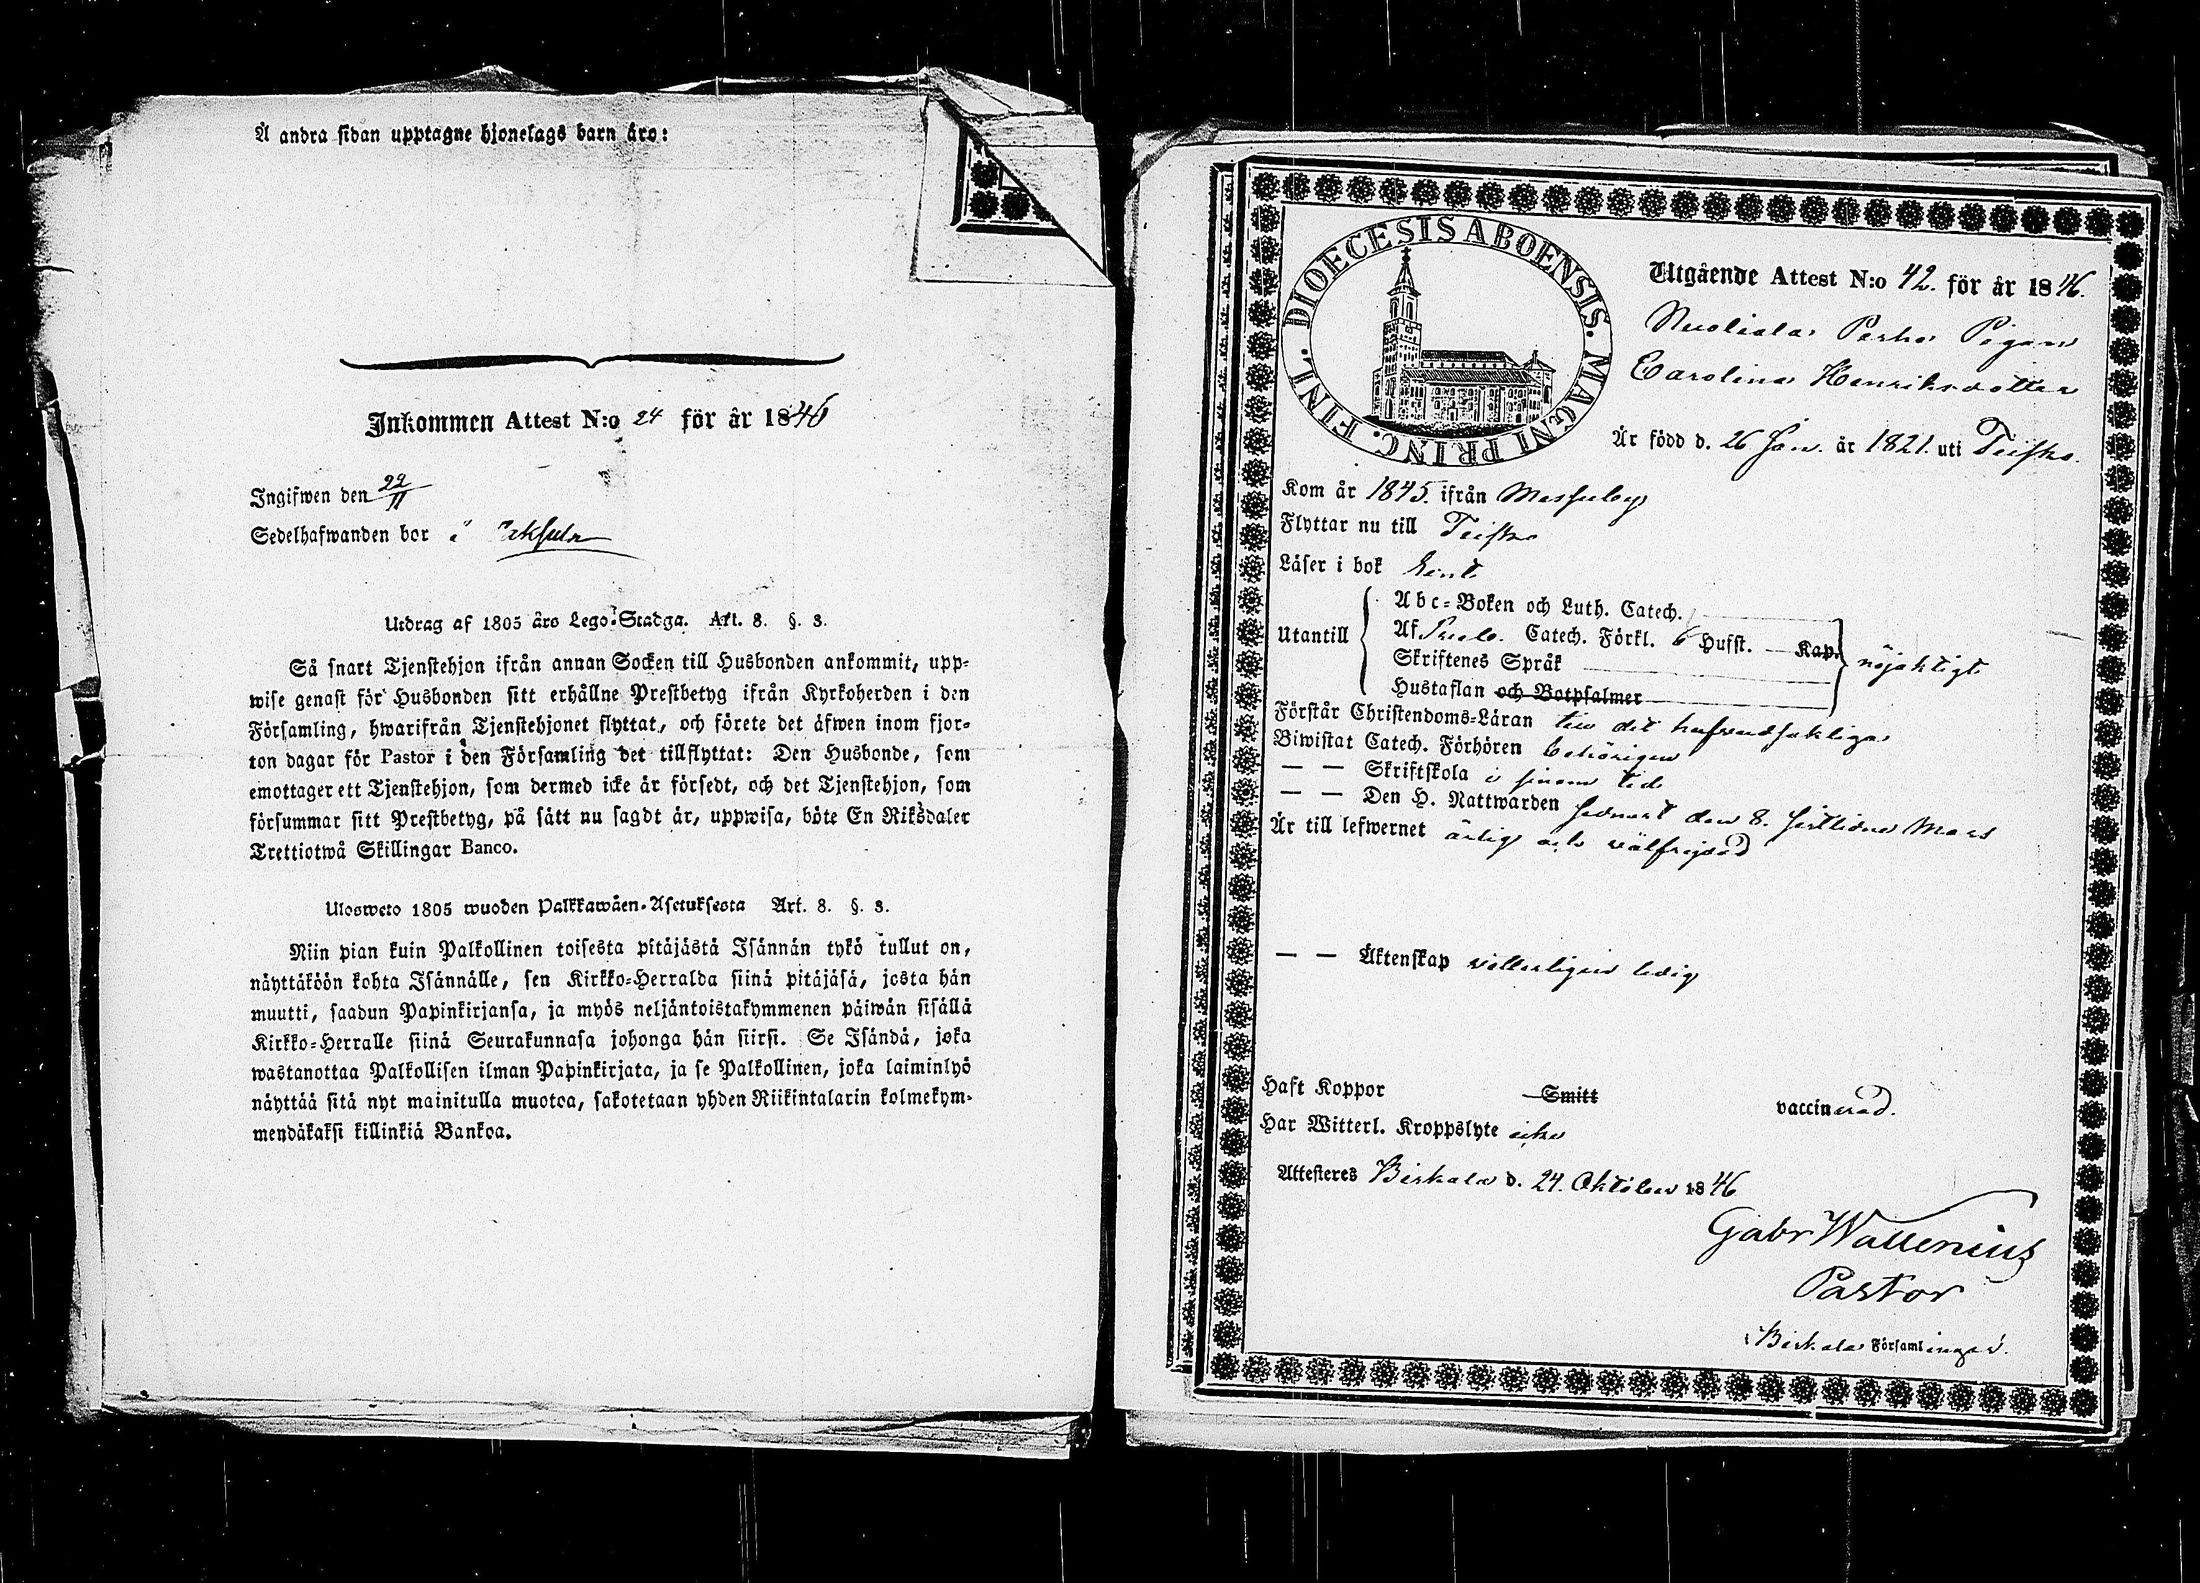 Å andra sidan upptagne hjonelags barn äro:
Inkommen Attest N:o 24 för år 1846
Ingifwen den 22/11
Sedelhafwanden bor i
Utdrag af 1805 års Lego-Stadga. Art. 8. §. 3.
Så snart Tjenstehjon ifrån annan Socken till Husbonden ankommit, upp-
wise genast för Husbonden sitt erhållne Prestbetyg ifrån Kyrkoherden i den
Församling, hwarifrån Tjenstehjonet flyttat, och förete det äfwen inom fjor-
ton dagar för Pastor i den Församling det tillflyttat: Den Husbonde, som
emottager ett Tjenstehjon, som dermed icke är försedt, och det Tjenstehjon, som
försummar sitt Prestbetyg, på sätt nu sagdt är, uppwisa, böte En Riksdaler
Trettiotwå Skillingar Banco.
Ulosweto 1805 wuoden Palkkawäen-Asetuksesta Art. 8. §. 3.
Niin pian kuin Palkollinen toisesta pitäjästä Isännän tykö tullut on,
näyttäköön kohta Isännälle, sen Kirkko-Herralda siinä pitäjäsä, josta hän
muutti, saadun Papinkirjansa, ja myös neljäntoistakymmenen päiwän sisällä
Kirkko-Herralle siinä Seurakunnasa johonga hän siirsi. Se Isändä, joka
wastanottaa Palkollisen ilman Papinkirjata, ja se Palkollinen, joka laiminlyö
näyttää sitä nyt mainitulla muotoa, sakotetaan yhden Riikintalarin kolmekym-
mendäkaksi killinkiä Bankoa.
DIOECESIS ABOENSIS. MAGNI PRINC. FINL.
Utgående Attest N:o 42. för år 1846.
Nuoliala Perho Pigan
Carolina Henriksdotter
Är född d. 26 Jan. år 1821. uti Teisko.
Kom år 1845. ifrån Messuby
Flyttar nu till Teisko
Läser i bok rent
Utantill
Abc-Boken och Luth. Catech.
Af Catech. Förkl. 6 Hufst. — Kap.
Skriftenes Språk
Hustaflan och Botpsalmer
nöjaktigt
Förstår Christendoms-Läran till det hufvudsakliga
Biwistat Catech. Förhören behörigen
— — Skriftskola i sinom tid
— — Den H. Nattwarden sednast den 8. sistlidne Mars
Är till lefwernet ärlig och välfrejdad
— — Äktenskap veterligen ledig
Haft Koppor Smitt vaccinerad.
Har Witterl. Kroppslyte icke
Attesteres Birkala d. 24. Oktober 1846
Gabr Wallenius
Pastor
i Birkala Församlingar.